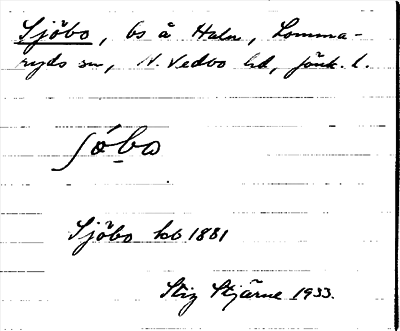 Sjöbo, bs å Haln, Lomma-
ryds sn, N. Vedbo hd, jönk. l.
ʃóbo
Sjöbo hb 1881
Stig Stjärne 1933.